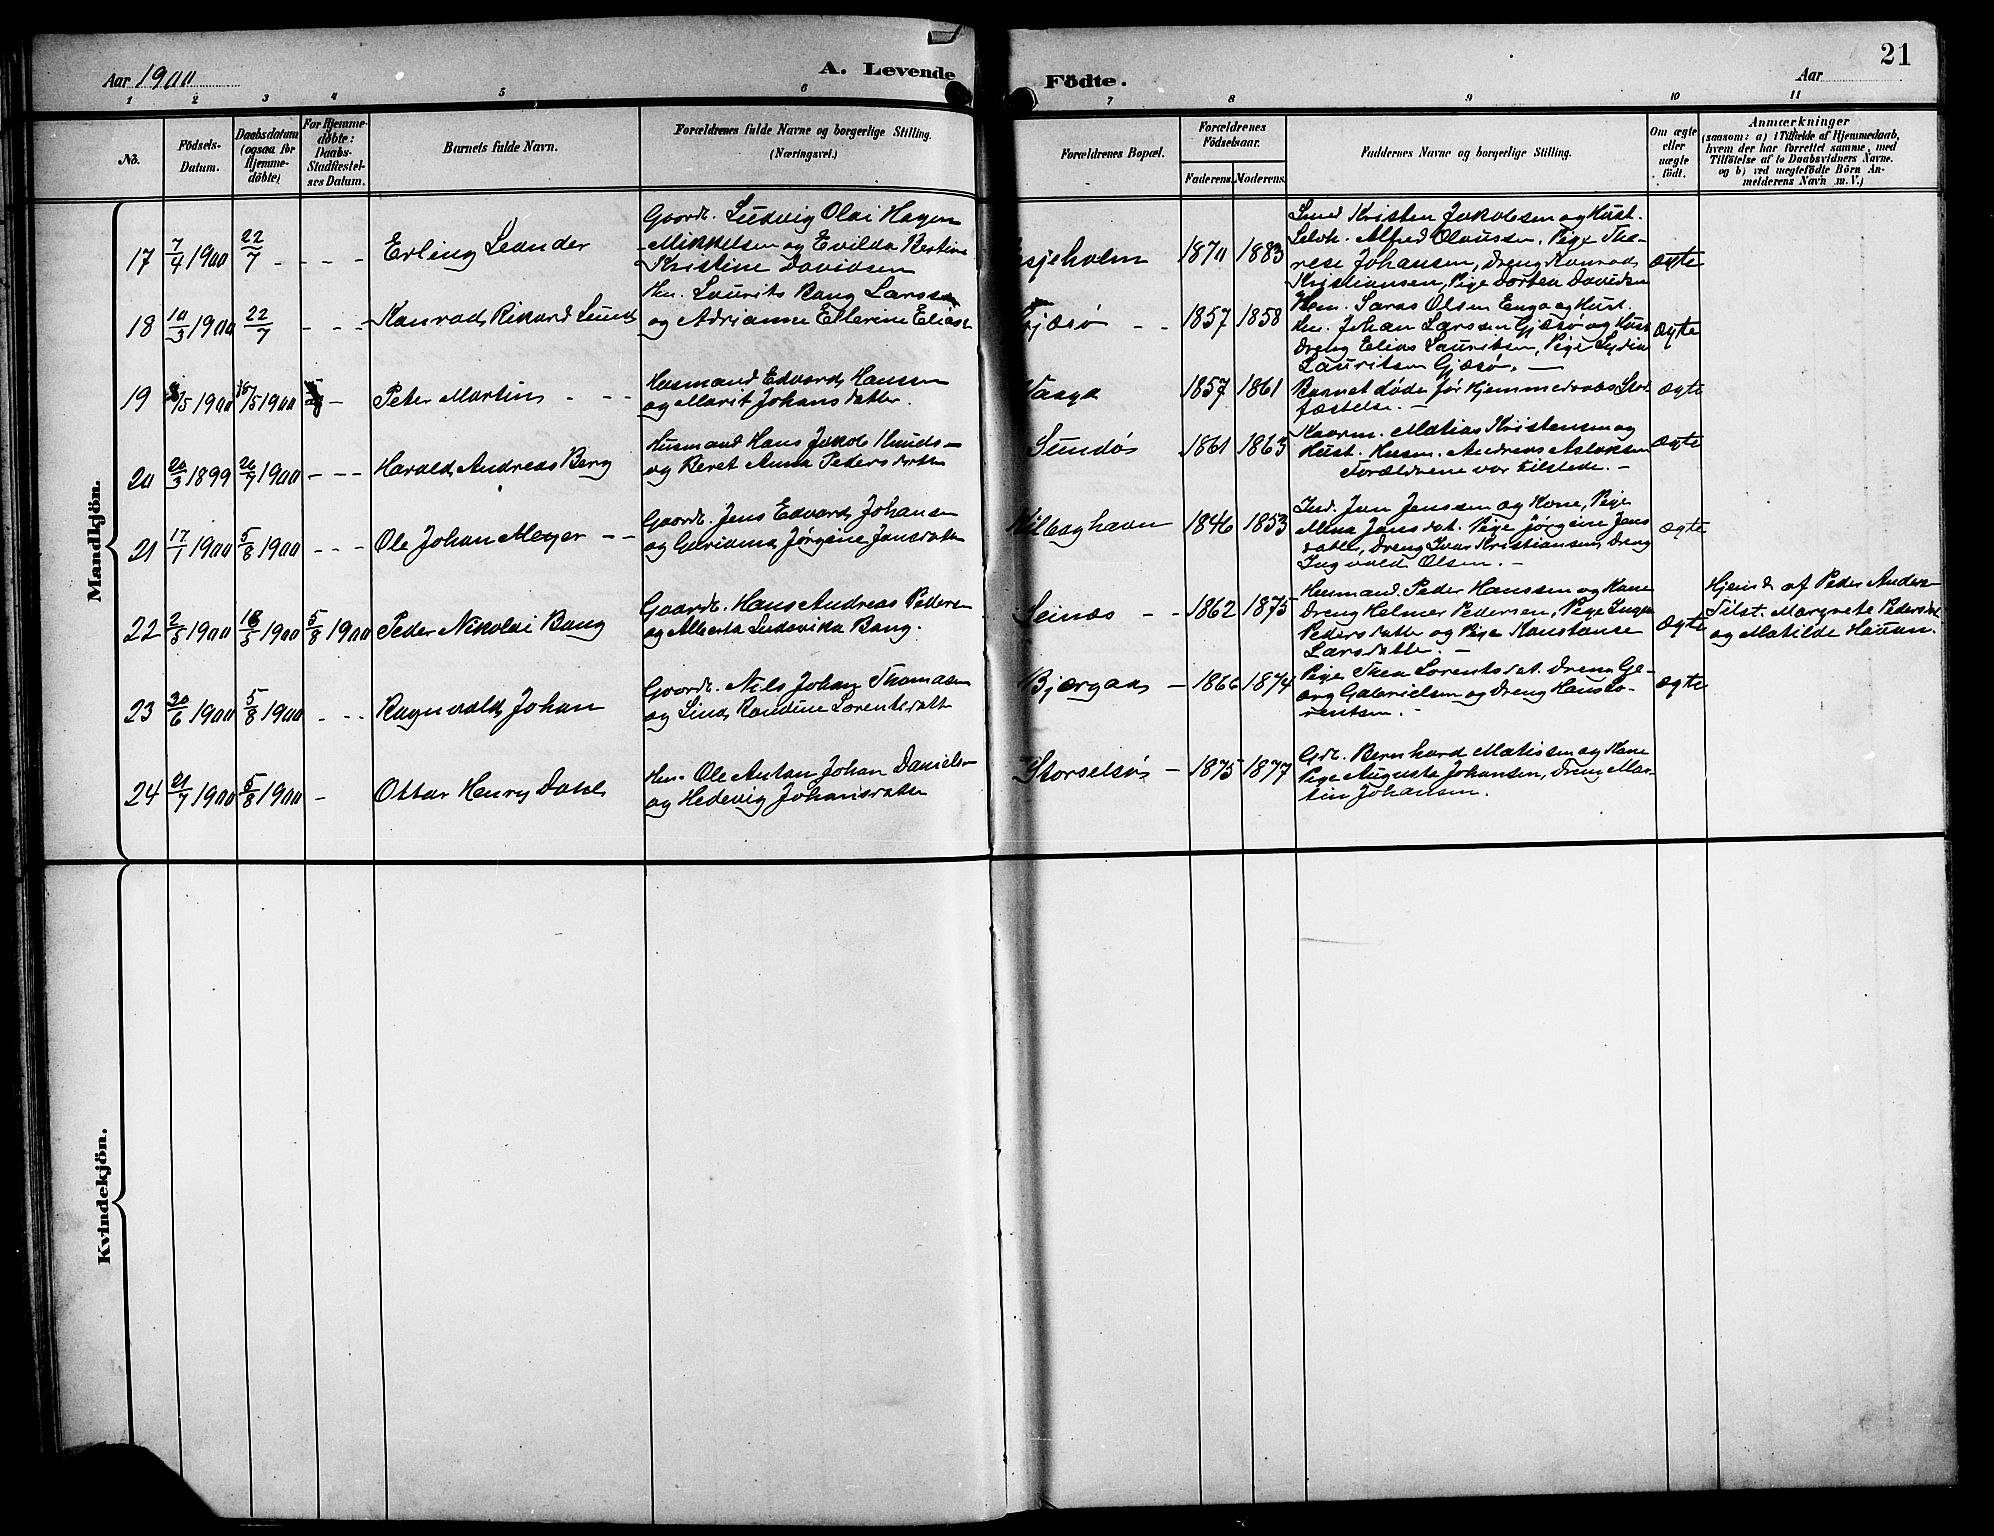 Aar 1900
A. Levende
Födte.
Aar
21
1 2 3 4 5 6 7 8 9 10 11
No.
Födsels-
Datum.
Daabsdatum
(ogsaa for
Hjemme-
döbte)
For Hjemme-
döbte:
Daabs-
Stadfæstel-
ses Datum.
Barnets fulde Navn.
Forældrenes fulde Navne og borgerlige Stilling.
(Næringsvei.)
Forældrenes Bopæl.
Forældrenes
Födselsaar.
Faderens. Moderens.
Faddernes Navne og borgerlige Stilling.
Om ægte
eller
uægte
födt.
Anmærkninger
(saasom: a) i Tilfælde af Hjemmedaab,
hvem der har forrettet samme, med
Tilföielse af to Daabsvidners Navne.
og b) ved uægtefödte Börn An-
melderens Navn m. V.)
Mandkjön.
17 7/4 1900 22/7 - - - - Erling Leander
Gaardb. Ludvig Olai Hagen
Mikkelsen og Evilda Bertine
Kristine Davidsen
1870 1883
Smed Kristen Jakobsen og Hust.
Selvh. Alfred Olaussen, Pige The-
rese Johansen, Dreng Konrad
Kristiansen, Pige Dortea Davidsen
ægte
18 10/3 1900 22/7 - - - Konrad Rikard Lund
Hm. Laurits Bang Larssen
og Adrianne Ellerine Eliasd
Gjæsø - - 1857 1858
Hm. Saras Olsen Enga og Hust.
Hm. Johan Larssen Gjæsø og Hust
Dreng Elias Lauritsen, Pige Lydia
Lauritsen Gjæsø. -
ægte
19 1900 1900 - Peter Martin - - -
Husmand Edvard Hansen
og Marit Johansdatter.
Vaaga 1857 1861
Barnet døde før Hjemmedaabs Stad-
fæstelse. -
ægte
20 20/3 1899 26/7 1900 - - - Harald Andreas Berg
Husmand Hans Jakob Knuds-
og Beret Anna Pedersdatter
Sundøs 1861 1863
Kaarm. Matias Kristensen og
Hust. Husm. Andreas Aslaksen
Forældrene var tilstede. -
ægte
21 17/7 1900 5/8 1900 - - - Ole Johan Meyer - -
Gaardb. Jens Edvard Johansen
og Gjeriana Jørgine Jansdatter
Kilboghavn 1846 1853
Ind. Jan Jenssen og Kone, Pige
Mina Jansdat. Pige Jørgine Jens
datter, Dreng Ivar Kristiansen, Dreng
Ingvald Olsen. -
ægte
22 2/5 1900 18/5 1900 5/8 1900 Peder Nikolai Bang
Gaardb. Hans Andreas Peders-
og Alberta Ludovika Bang.
Seinæs - - 1862 1875
Husmand. Peder Hanssen og Kone
Dreng Helmer Pedersen, Pige Inga
Pedersdatter og Pige Konstanse
Larsdatter. -
ægte
Hjemd. af Peder Anders-
Tilst. Margrete Pedersdat
og Matilde Hauan.
23 30/6 1900 5/8 1900 - - - Ragnvald Johan
Gaardb. Nils Johan Thomasen
og Lina Randine Lorentsdatt
Bjærgaas - 1866 1874
Pige Thea Lorentsdat. Dreng Ge-
org Gabrielsen og Dreng Hans Lo-
rentsen. -
ægte
24 21/7 1900 5/8 1900 - Ottar Henry Dahl
Hm. Ole Antan Johan Daniels-
og Hedevig Johansdatter
Storselsøs - 1875 1877
Grb. Bernhard Matissen og Kone
Pige Augusta Johansen, Dreng Mar-
tin Johansen.
Kvindekjön.